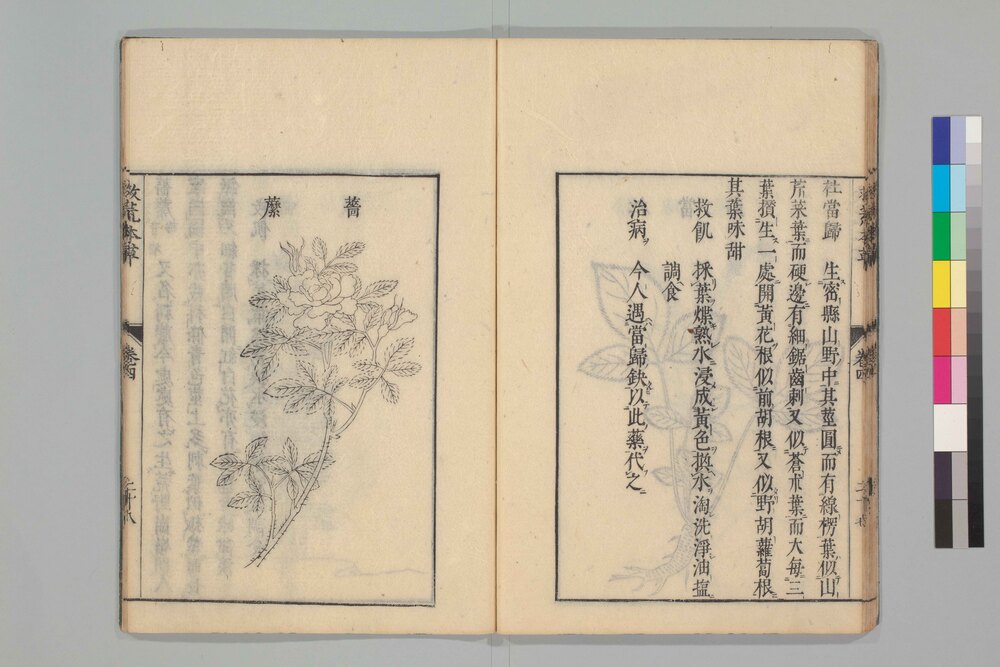 杜當歸　生密縣山野中其莖圓而有線楞葉似山
芹菜葉而硬邊有細鋸齒刺又似蒼朮葉而大每三
葉攅生一處開黃花根似前胡根又似野胡蘿蔔根
其葉味甜
救飢　採葉煠熟水浸成黃色換水淘洗淨油塩
調食
治病　今人遇當歸缺以此藥代之
卷四
薔
蘼
救荒本草
卷四
二十八